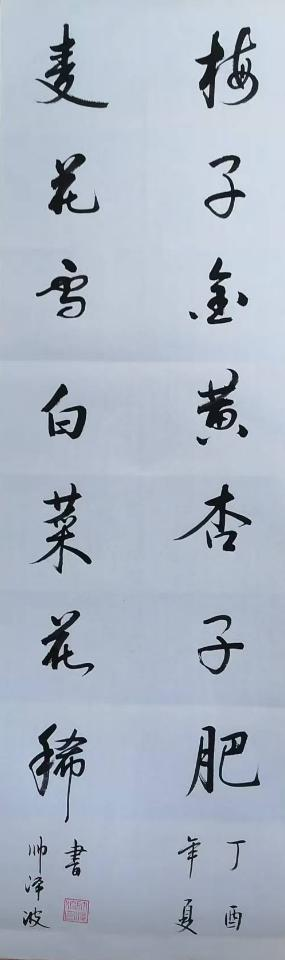 梅子金黄杏子肥
丁酉
年夏
麦花雪白菜花稀
書
帅泽波